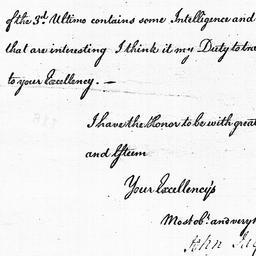 of the 3d. Ultimo contains some Intelligence and
that are interesting I think it my Duty to tra
to your Excellency. —
I have the Honor to be with great
and Esteem
Your Excellency's
Most obt. and very h
John